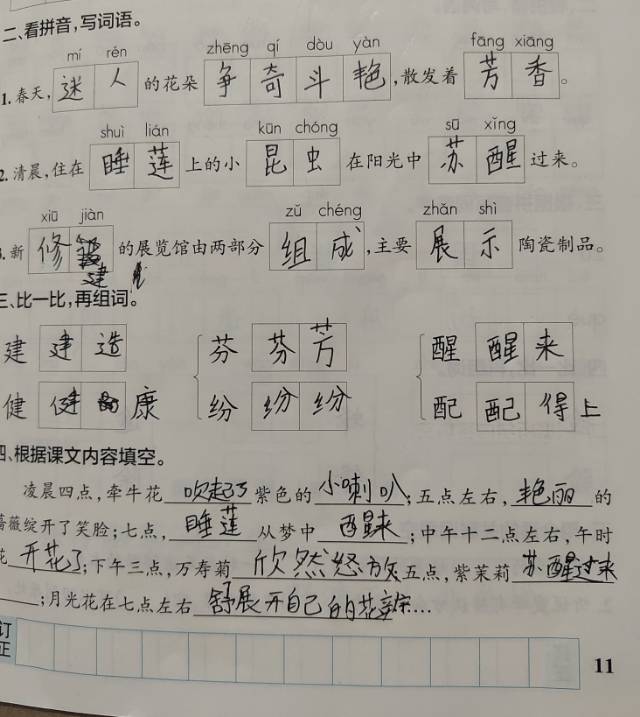 二、看拼音，写词语。
mí rén zhēng qí dòu yàn fāng xiāng
1. 春天，迷人的花朵争奇斗艳，散发着芳香。
shuì lián kūn chóng sū xǐng
2. 清晨，住在睡莲上的小昆虫在阳光中苏醒过来。
xiū jiàn zǔ chéng zhǎn shì
3. 新修建的展览馆由两部分组成，主要展示陶瓷制品。
三、比一比，再组词。
建 建造 芬 芬芳 醒 醒来
健 健康 纷 纷纷 配 配得上
四、根据课文内容填空。
凌晨四点，牵牛花吹起了紫色的小喇叭；五点左右，艳丽的
蔷薇绽开了笑脸；七点，睡莲从梦中醒来；中午十二点左右，午时
花开花了；下午三点，万寿菊欣然怒放五点，紫茉莉苏醒过来
；月光花在七点左右舒展开自己的花瓣…
订正
11